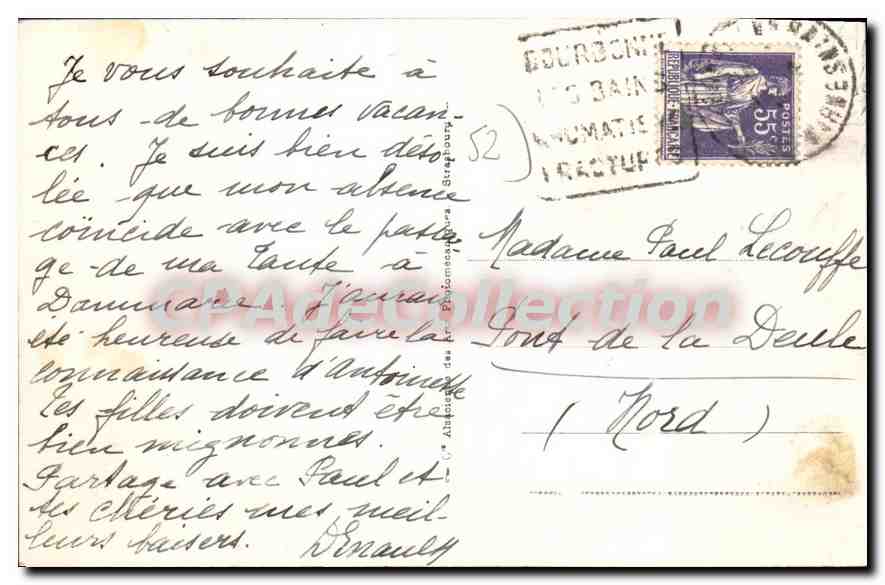 Je vous souhaite à
tous de bonnes vacan-
ces. Je suis bien déso-
lée que mon absence
coïncide avec le passa-
ge de ma tante à
Dammarie. J'aurais
été heureuse de faire la
connaissance d'Antoinette
tes filles doivent être
bien mignonnes.
Partage avec Paul et
tes chéries mes meil-
leurs baisers.
Cie Alsacienne des Arts Photomécaniques, Strasbourg
52
BOURBONNE
LES BAINS
RHUMATIS
FRACTUR
REPUBLIQUE FRANÇAISE
POSTES
55c
Madame Paul Lecouffe
Pont de la Deule
(Nord)
CPAdeCollection